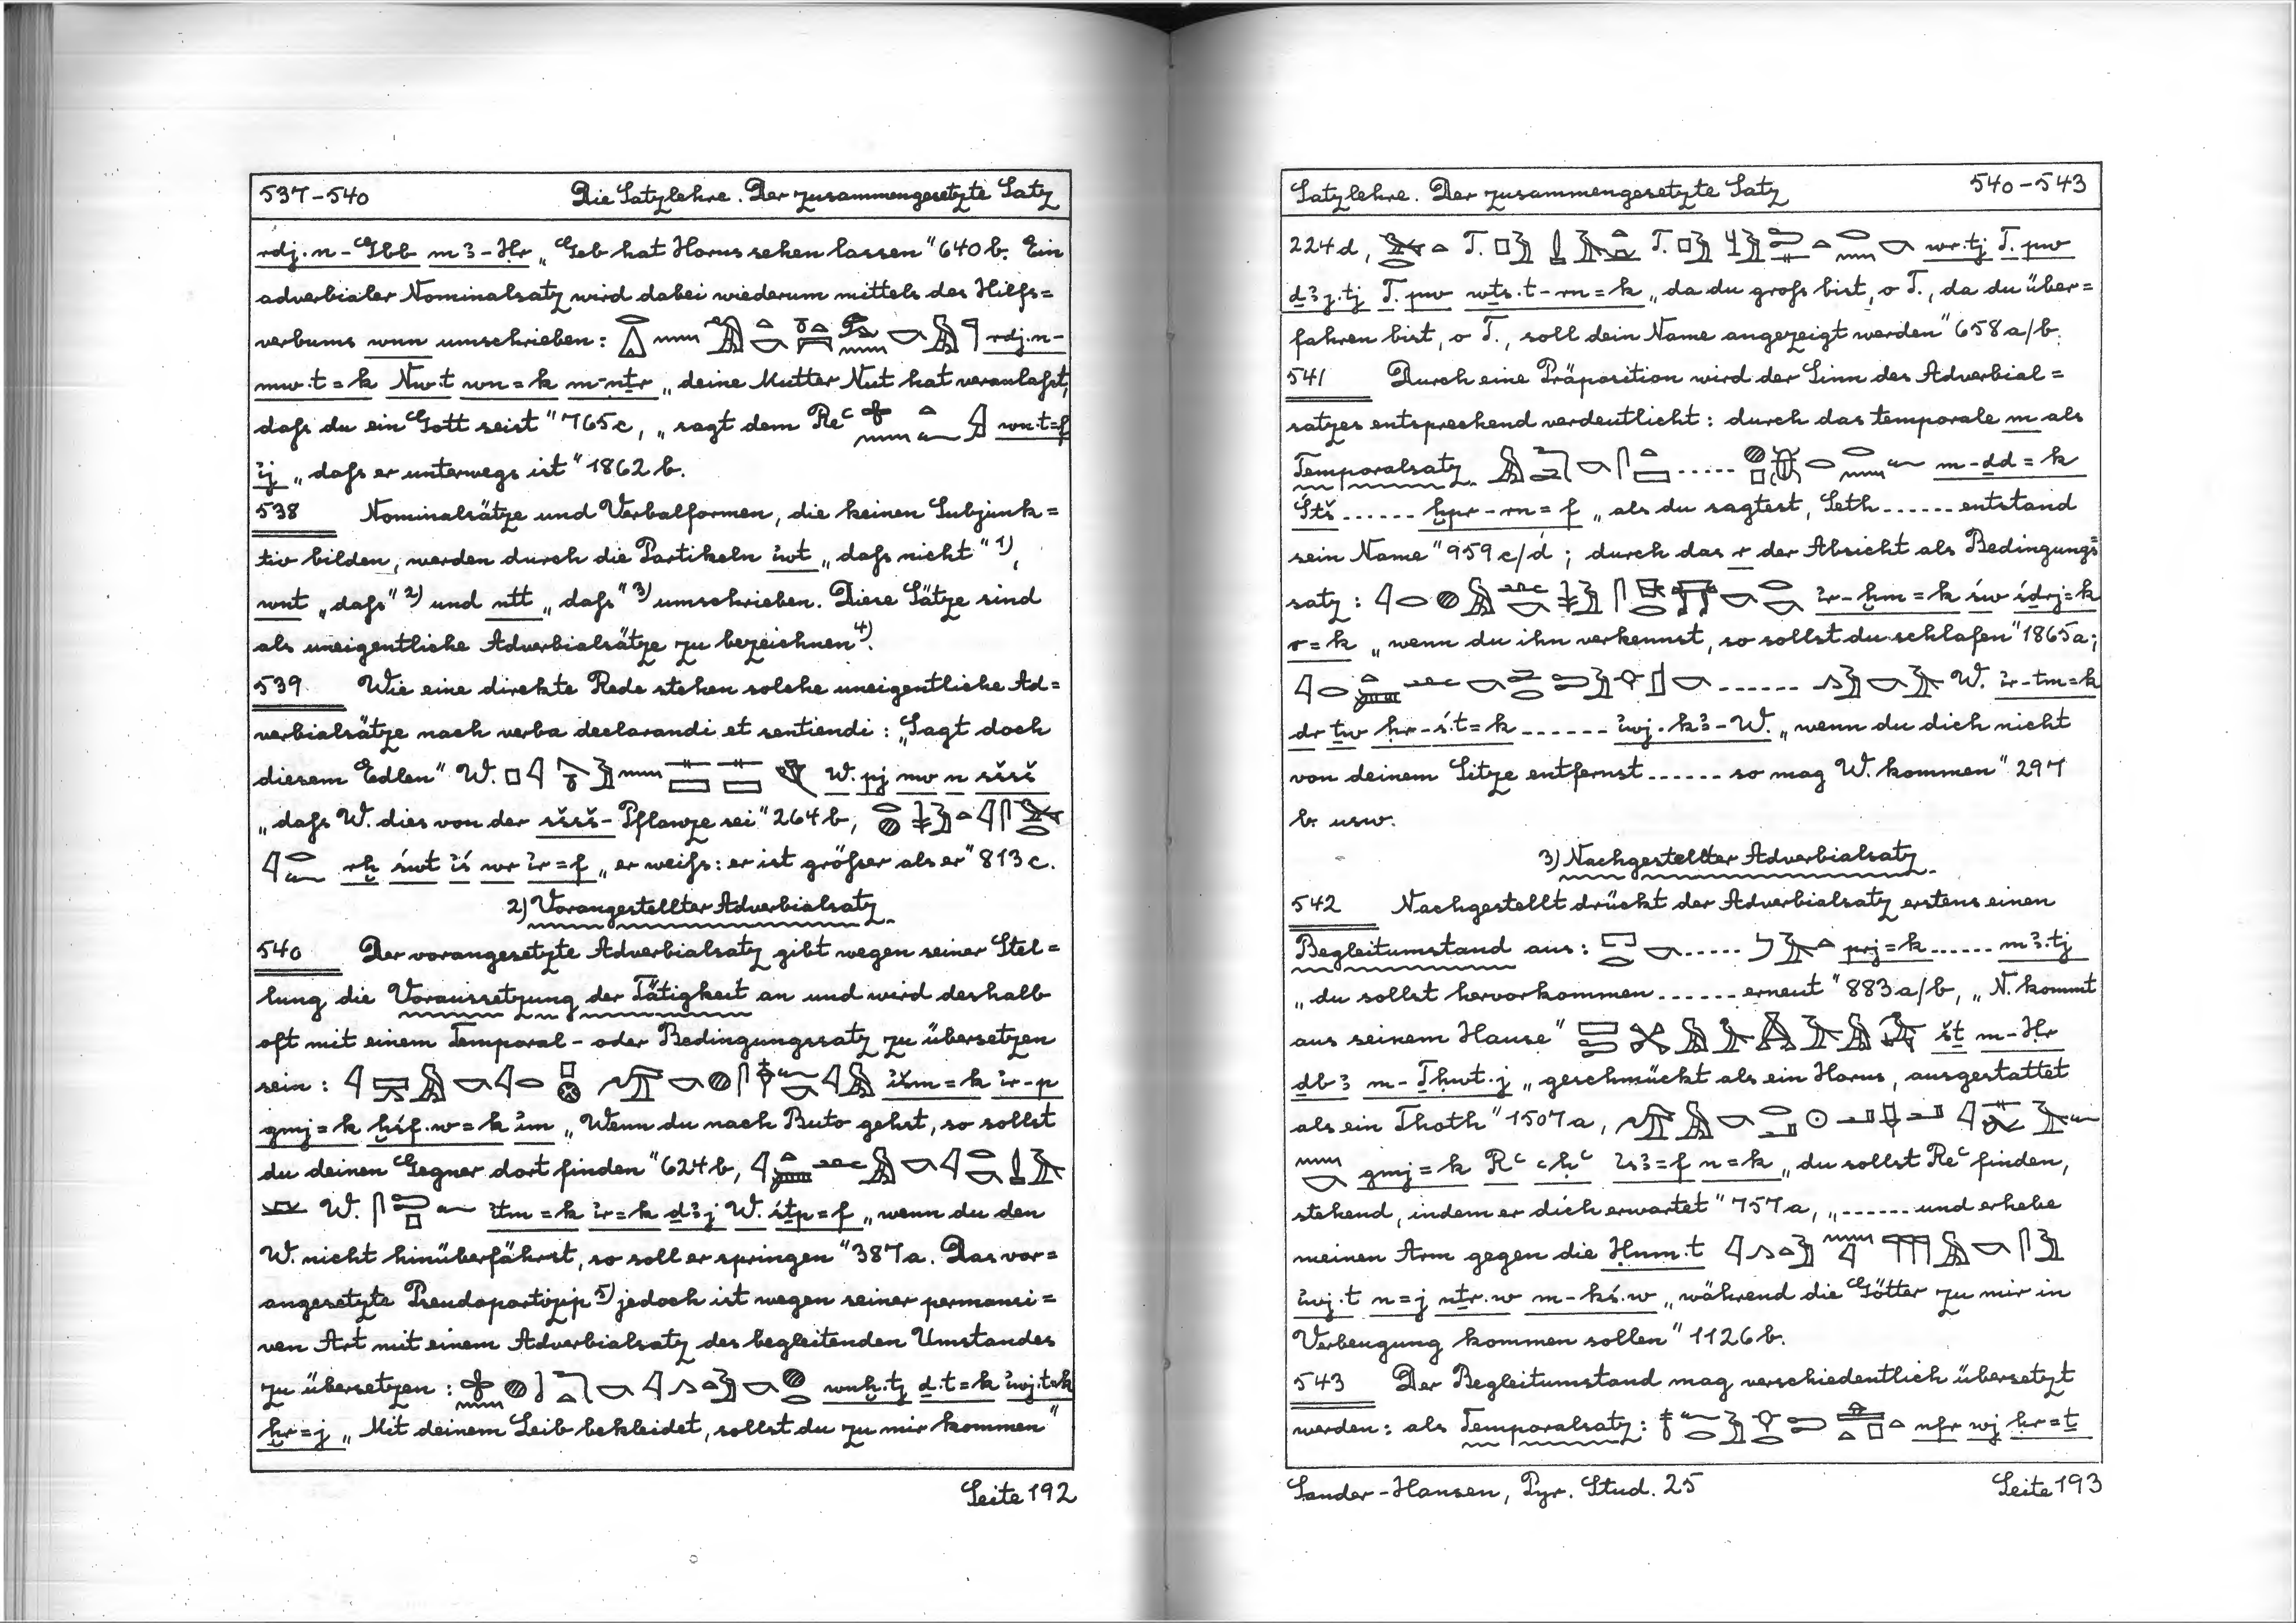 537-540 Die Satzlehre. Der zusammengesetzte Satz
rdj.n-Gbb m3-Ḥr „Geb hat Horus sehen lassen" 640 b. Ein
adverbialer Nominalsatz wird dabei wiederum mittels des Hilfs=
verbums wnn umschrieben: rdj.n-
mw.t=k Nw.t wn=k m-nṯr „deine Mutter Nut hat veranlaßt,
daß du ein Gott seist" 765c, „sagt dem Reᶜ wn.t=f
ỉj „daß er unterwegs ist" 1862 b.
538 Nominalsätze und Verbalformen, die keinen Subjunk=
tiv bilden, werden durch die Partikeln ỉwt „daß nicht" 1),
wnt „daß" 2) und ntt „daß" 3) umschrieben. Diese Sätze sind
als uneigentliche Adverbialsätze zu bezeichnen 4).
539 Wie eine direkte Rede stehen solche uneigentliche Ad=
verbialsätze nach verba declarandi et sentiendi: „Sagt doch
diesem Edlen" W. W. pj nw n sšsš
„daß W. dies von der sšsš-Pflanze sei" 264 b,
rḫ św.t ỉś wr ỉr=f „er weiß: er ist größer als er" 813 c.
2) Vorangestellter Adverbialsatz.
540 Der vorangesetzte Adverbialsatz gibt wegen seiner Stel=
lung die Voraussetzung der Tätigkeit an und wird deshalb
oft mit einem Temporal- oder Bedingungssatz zu übersetzen
sein: ỉšm=k ỉr-p
gmj=k ḫśf.w=k ỉm „Wenn du nach Buto gehst, so sollst
du deinen Gegner dort finden" 624 b,
W. ỉtm=k ỉr=k ḏ3j W. śṯp=f „wenn du den
W. nicht hinüberfährst, so soll er springen" 387a. Das vor=
angesetzte Pseudopartizip 5) jedoch ist wegen seiner permansi=
ven Art mit einem Adverbialsatz des begleitenden Umstandes
zu übersetzen: wnḫ.tj ḏ.t=k ỉwj.t=k
ḫr=j „Mit deinem Leib bekleidet, sollst du zu mir kommen"
Seite 192
Satzlehre. Der zusammengesetzte Satz 540-543
224d, T. T. wr.tj T. pw
ḏ3j.tj T. pw wṯs.t-rn=k „da du groß bist, o T., da du über=
fahren bist, o T., soll dein Name angezeigt werden" 658 a/b.
541 Durch eine Präposition wird der Sinn des Adverbial=
satzes entsprechend verdeutlicht: durch das temporale m als
Temporalsatz ...... m-ḏd=k
Śtš ...... ḫpr-rn=f „als du sagtest, Seth ...... entstand
sein Name" 959 c/d; durch das r der Absicht als Bedingungs=
satz: ỉr-ḫm=k św śḏrj=k
r=k „wenn du ihn verkennst, so sollst du schlafen" 1865a;
...... W. ỉr-tm=k
dr ṯw ḥr-ś.t=k ...... ỉwj.k3-W. „wenn du dich nicht
von deinem Sitze entfernst ...... so mag W. kommen" 297
b usw.
3) Nachgestellter Adverbialsatz.
542 Nachgestellt drückt der Adverbialsatz erstens einen
Begleitumstand aus: ..... prj=k ...... m3.tj
„du sollst hervorkommen ...... erneut" 883 a/b, „N. kommt
aus seinem Hause" šṯ m-Ḥr
ḏb3 m-Ḏḥwt.j „geschmückt als ein Horus, ausgestattet
als ein Thoth" 1507a,
gmj=k Rᶜ ᶜḥᶜ ỉs3=f n=k „du sollst Reᶜ finden,
stehend, indem er dich erwartet" 757a, „...... und erhebe
meinen Arm gegen die Ḥnm.t
ỉwj.t n=j nṯr.w m-kś.w „während die Götter zu mir in
Verbeugung kommen sollen" 1126 b.
543 Der Begleitumstand mag verschiedentlich übersetzt
werden: als Temporalsatz: nfr wj ḥr=ṯ
Sander-Hansen, Pyr. Stud. 25 Seite 193